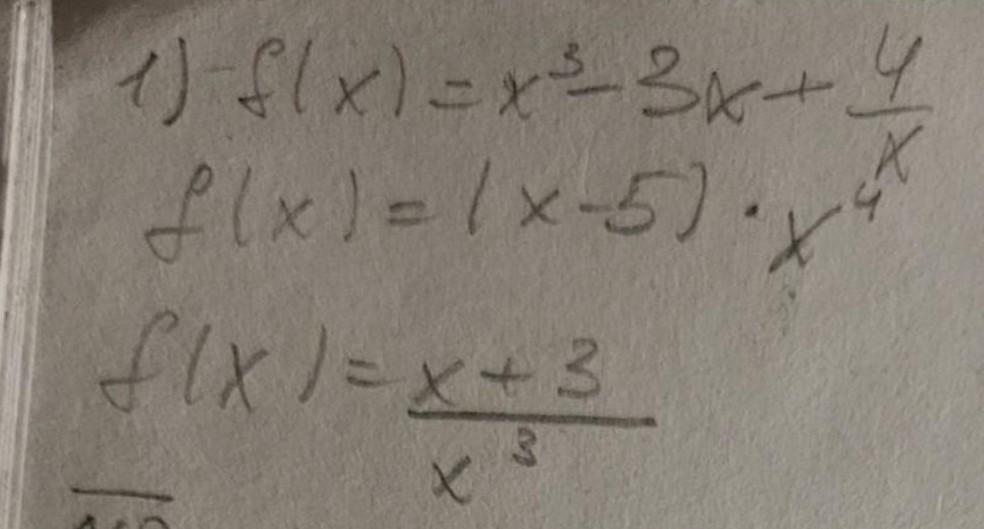 1) f(x) = x³ - 3x + 4/x
f(x) = (x-5) · x⁴
f(x) = x+3/x³